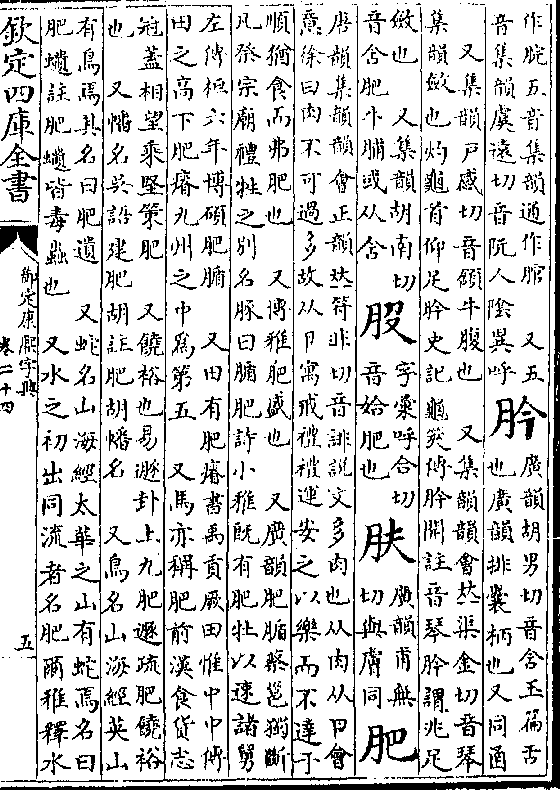 作䏓五音集韻通作䐄　又五
音集韻虞遠切音阮人陰異呼
肣
廣韻胡男切音含玉篇舌
也廣韻排囊柄也又同𠶷
又集韻戸感切音頷牛腹也　又集韻韻會𠀤渠金切音琴
集韻斂也灼龜首仰足肣史記龜筴傳肣開註音琴肣謂兆足
斂也　又集韻胡南切
音含肥牛脯或从含
𦙀
字彙呼合切
音姶肥也
肤
廣韻甫無
切與膚同
肥
唐韻集韻韻會正韻𠀤符非切音誹說文多肉也从肉从卪會
意徐曰肉不可過多故从卪寓戒禮禮運安之以樂而不達于
順猶食而弗肥也　又博雅肥盛也　又廣韻肥腯蔡邕獨斷
凡祭宗廟禮牲之別名豚曰腯肥詩小雅旣有肥牡以速諸舅
左傳桓六年博碩肥腯　又田有肥瘠書禹貢厥田惟中中傳
田之高下肥瘠九州之中爲第五　又馬亦稱肥前漢食貨志
冠蓋相望乘堅策肥　又饒裕也易遯卦上九肥遯疏肥饒裕
也　又幡名英詔建肥胡註肥胡幡名　又鳥名山海經英山
有鳥焉其名曰肥遺　又蛇名山海經太華之山有蛇焉名曰
肥䗔註肥䗔皆毒蟲也　又水之初出同流者名肥爾雅釋水
欽定四庫全書
御定康熙字典
卷二十四
五